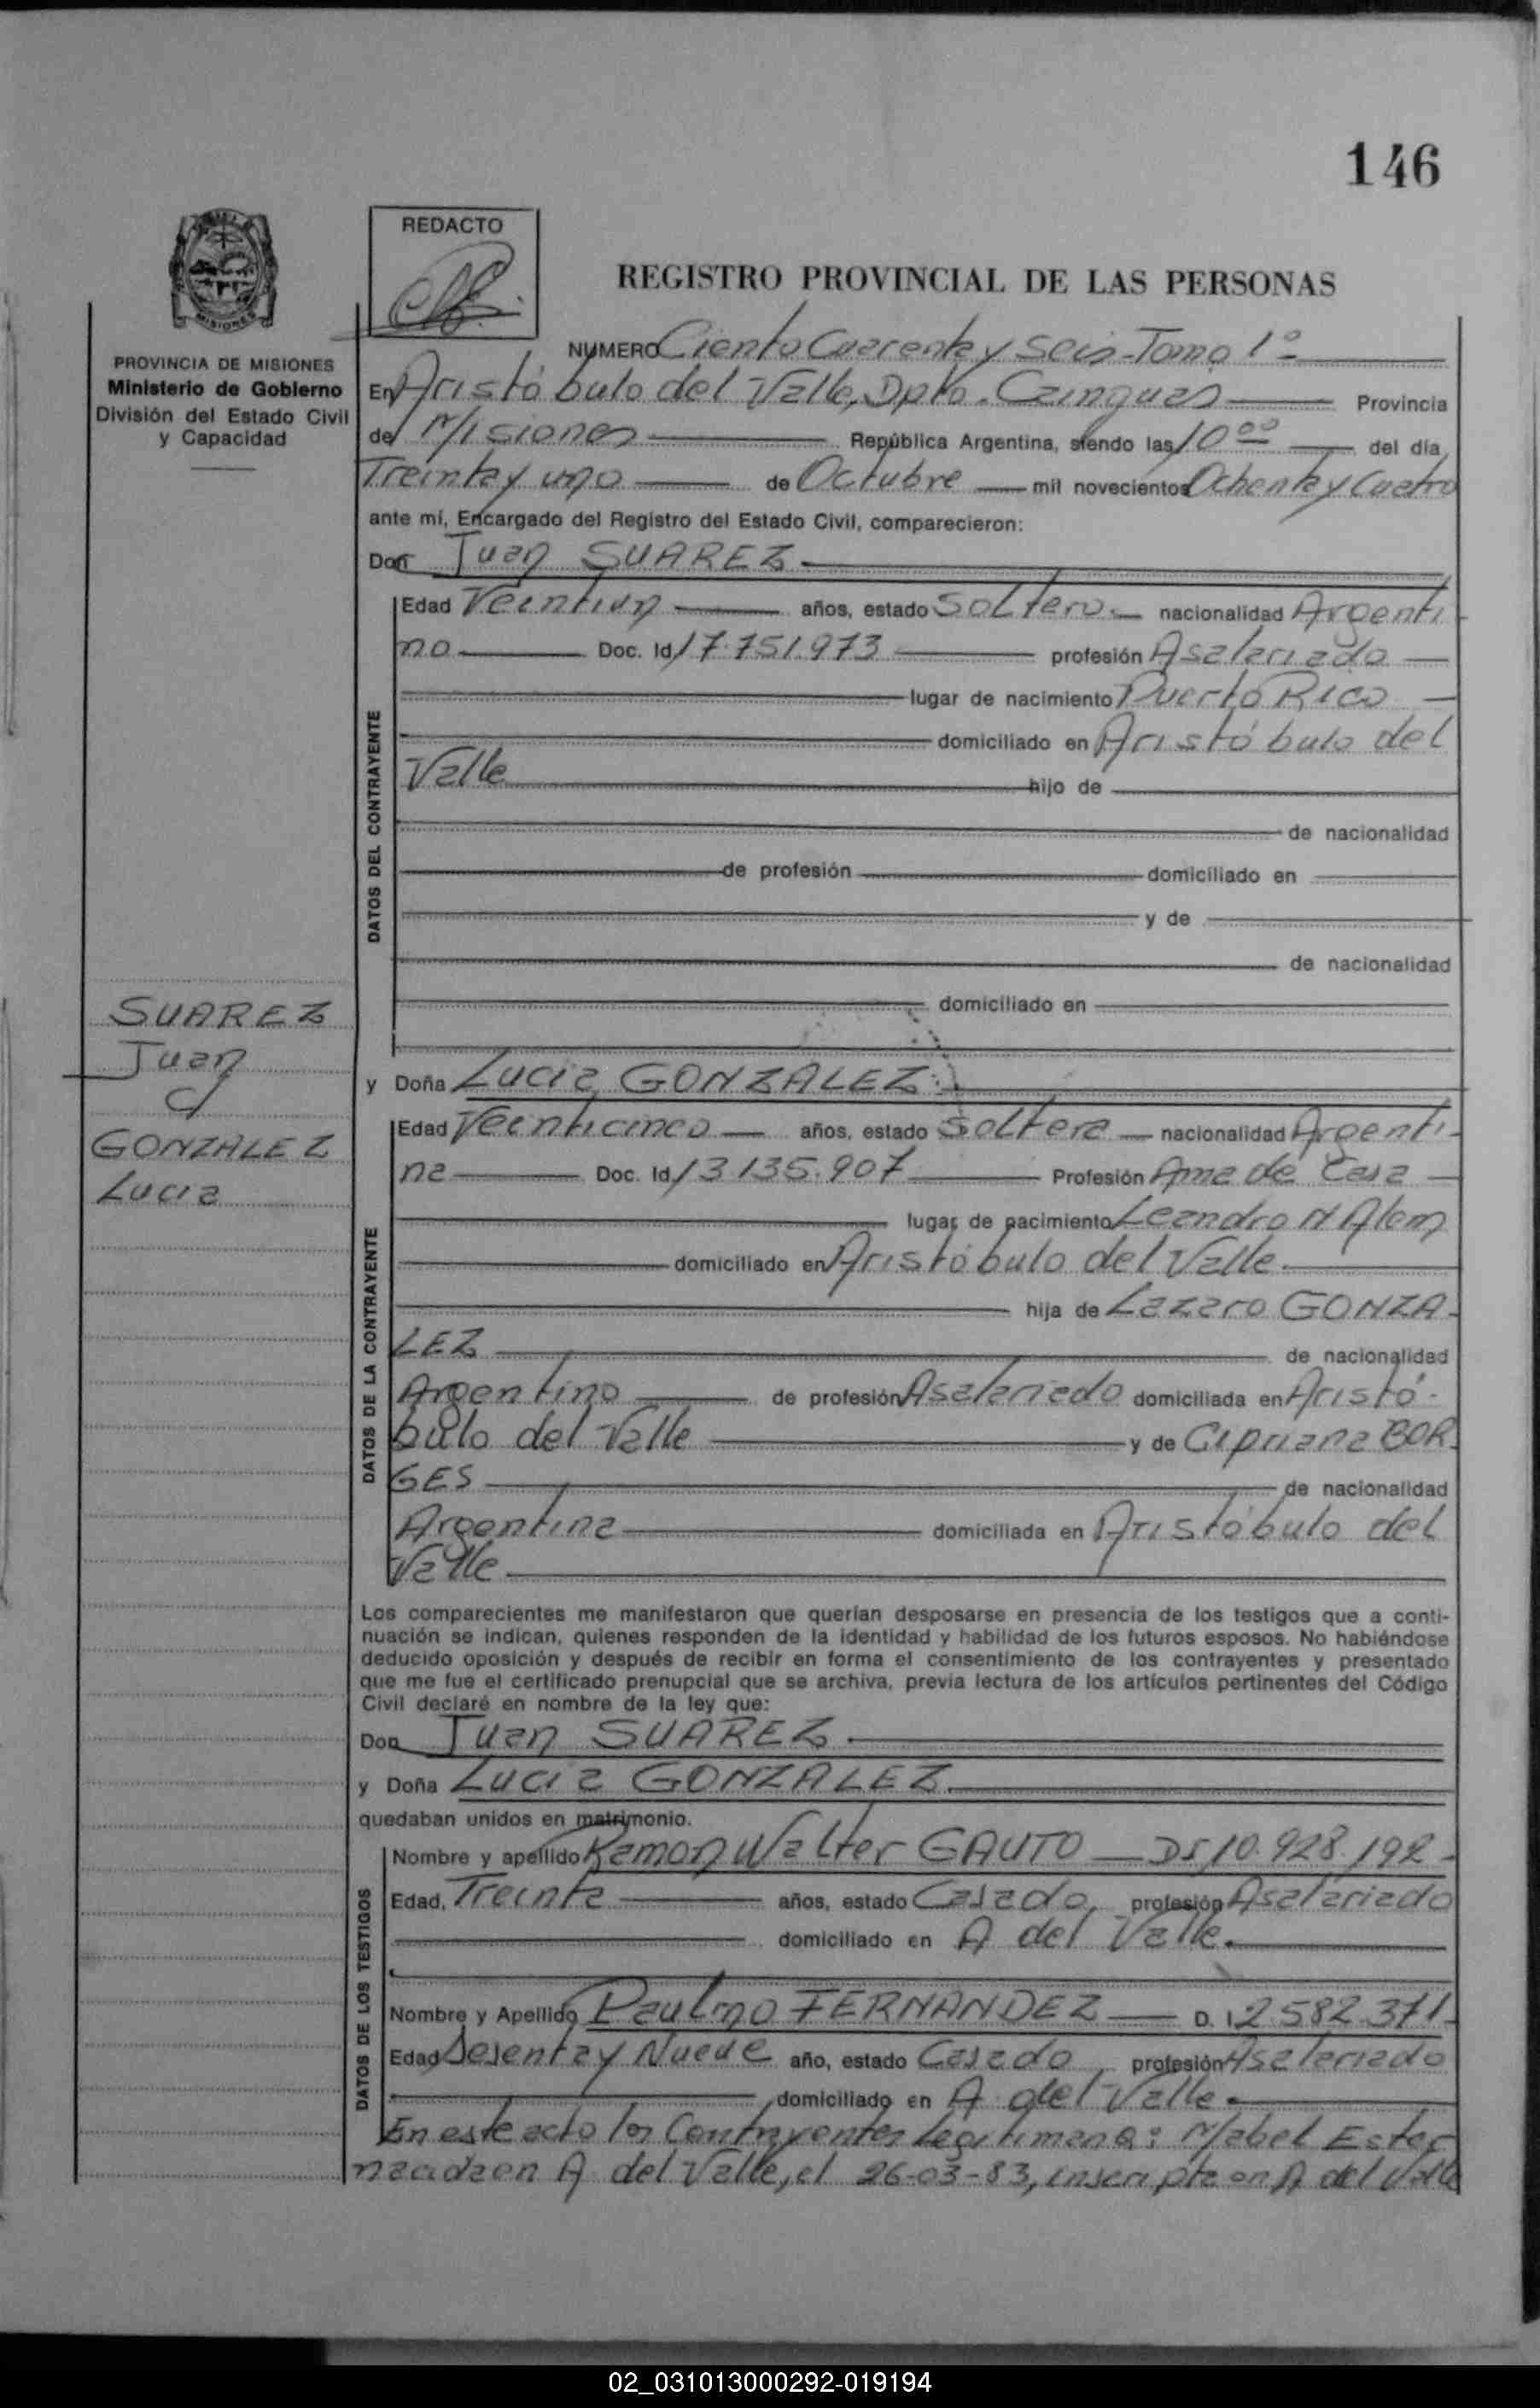 146
REDACTO
REGISTRO PROVINCIAL DE LAS PERSONAS
MISIONES
PROVINCIA DE MISIONES
Ministerio de Gobierno
División del Estado Civil
y Capacidad
NUMERO Ciento Cuarenta y Seis - Tomo 1º
En Aristóbulo del Valle, Dpto. Cainguas Provincia
de Misiones República Argentina, siendo las 10 00 del día
Treinta y uno de Octubre mil novecientos Ochenta y Cuatro
ante mí, Encargado del Registro del Estado Civil, comparecieron:
Don Juan SUAREZ
DATOS DEL CONTRAYENTE
Edad Veintiun años, estado Soltero nacionalidad Argenti-
no Doc. Id 17.751.973 profesión Asalariado
lugar de nacimiento Puerto Rico
domiciliado en Aristóbulo del
Valle hijo de
de nacionalidad
de profesión domiciliado en
y de
de nacionalidad
domiciliado en
SUAREZ
Juan
c/
GONZALEZ
Lucia
y Doña Lucia GONZALEZ
DATOS DE LA CONTRAYENTE
Edad Veinticinco años, estado Soltera nacionalidad Argenti-
na Doc. Id 13.135.907 Profesión Ama de Casa
lugar de nacimiento Leandro N Alem
domiciliado en Aristóbulo del Valle.
hija de Lazaro GONZA-
LEZ de nacionalidad
Argentino de profesión Asalariado domiciliada en Aristó-
bulo del Valle y de Cipriana BOR-
GES de nacionalidad
Argentina domiciliada en Aristóbulo del
Valle
Los comparecientes me manifestaron que querían desposarse en presencia de los testigos que a conti-
nuación se indican, quienes responden de la identidad y habilidad de los futuros esposos. No habiéndose
deducido oposición y después de recibir en forma el consentimiento de los contrayentes y presentado
que me fue el certificado prenupcial que se archiva, previa lectura de los artículos pertinentes del Código
Civil declaré en nombre de la ley que:
Don Juan SUAREZ
y Doña Lucia GONZALEZ
quedaban unidos en matrimonio.
DATOS DE LOS TESTIGOS
Nombre y apellido Ramon Walter GAUTO DI 10.928.192
Edad, Treinta años, estado Casado, profesión Asalariado
domiciliado en A del Valle.
Nombre y Apellido Paulino FERNANDEZ D. I 2.582.371
Edad Sesenta y Nueve año, estado Casado, profesión Asalariado
domiciliado en A del Valle
En este acto los Contrayentes Legitiman a: Mabel Ester
nacida en A del Valle, el 26-03-83, inscripta en A del Valle
02_031013000292-019194